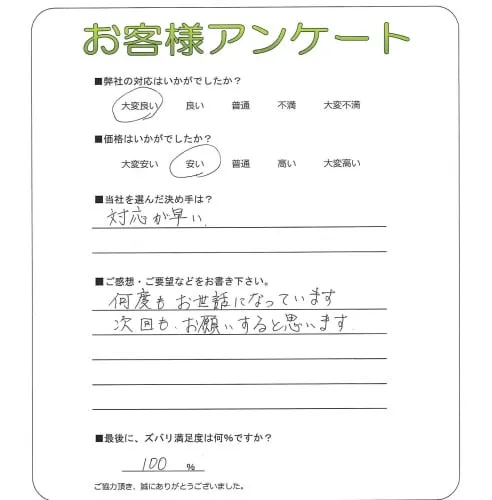 お客様アンケート
■弊社の対応はいかがでしたか？
大変良い 良い 普通 不満 大変不満
■価格はいかがでしたか？
大変安い 安い 普通 高い 大変高い
■当社を選んだ決め手は？
対応が早い
■ご感想・ご要望などをお書き下さい。
何度もお世話になっています
次回も、お願いすると思います.
■最後に、ズバリ満足度は何%ですか？
100 %
ご協力頂き、誠にありがとうございました。